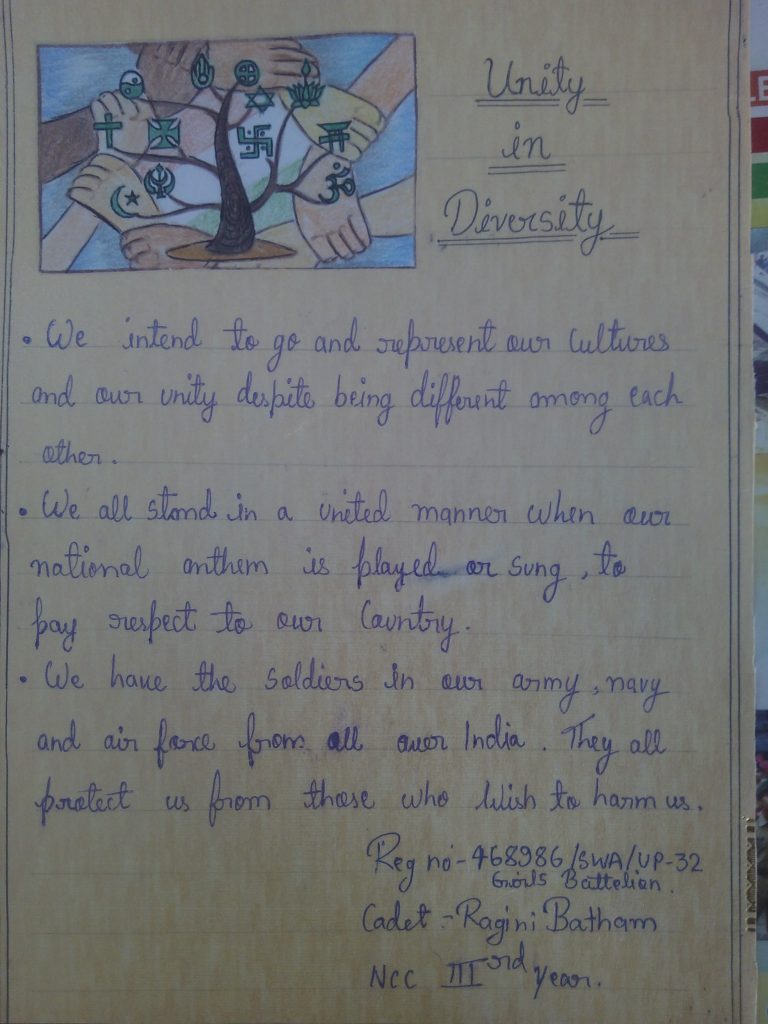 Unity
in
Diversity
• We intend to go and represent our Cultures
and our unity despite being different among each
other.
• We all stand in a united manner when our
national anthem is played or sung, to
pay respect to our Country.
• We have the soldiers in our army, navy
and air force from all over India. They all
protect us from those who Wish to harm us.
Reg no - 468986/SWA/UP-32
Girls Battelion.
Cadet :- Ragini Batham
NCC IIIrd Year.